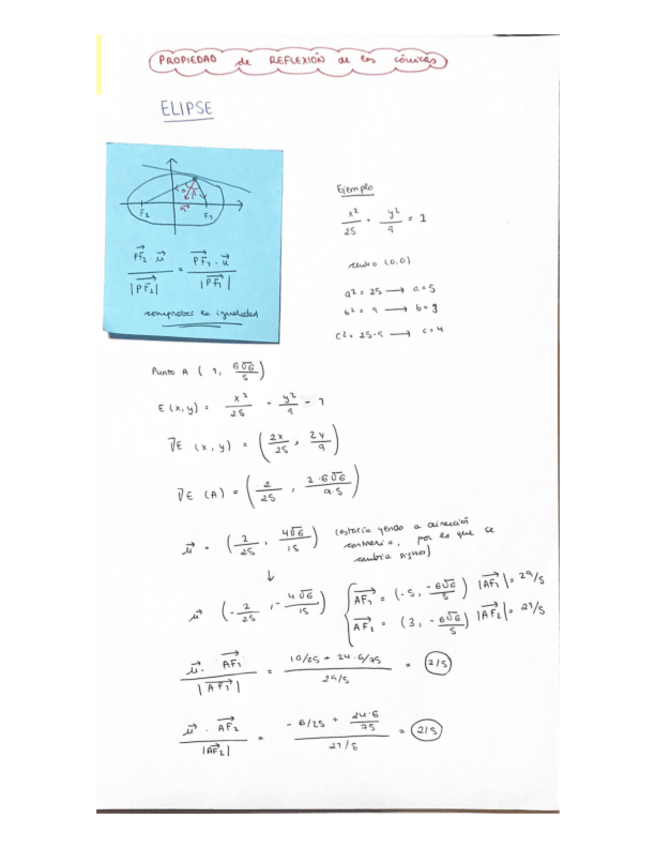 PROPIEDAD de REFLEXIÓN de las cónicas
ELIPSE
F₂ F₁
PF₂ · u / |PF₂| = PF₁ · u / |PF₁|
comprobar la igualdad
Ejemplo
x²/25 + y²/9 = 1
centro (0,0)
a² = 25 → a = 5
b² = 9 → b = 3
c² = 25-9 → c = 4
Punto A (1, 6√6/5)
E(x,y) = x²/25 + y²/9 - 1
∇E (x,y) = (2x/25, 2y/9)
∇E (A) = (2/25, 2·6√6/9·5)
u = (2/25, 4√6/15) (estaría yendo a dirección
contraria, por lo que se
cambia signo)
↓
u (-2/25, -4√6/15)
AF₁ = (-5, -6√6/5) |AF₁| = 29/5
AF₂ = (3, -6√6/5) |AF₂| = 21/5
u · AF₁ / |AF₁| = 10/25 + 24·6/75 / 29/5 = 2/5
u · AF₂ / |AF₂| = -6/25 + 24·6/75 / 21/5 = 2/5